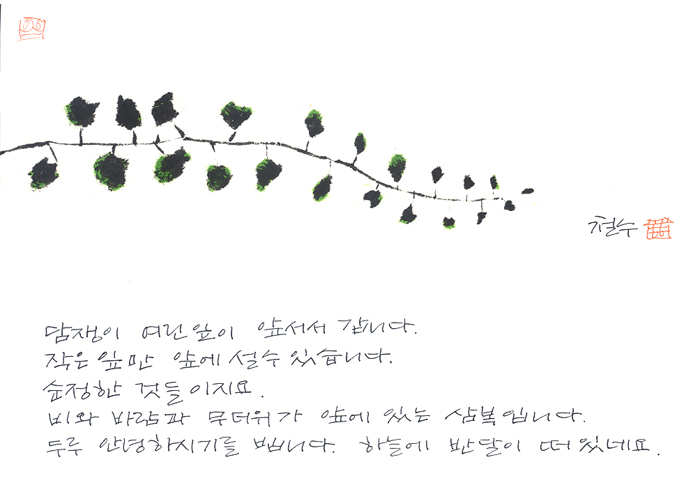 철수
담쟁이 여린 잎이 앞서서 갑니다.
작은 잎만 앞에 설 수 있습니다.
순정한 것들이지요.
비와 바람과 무더위가 앞에 있는 삼복입니다.
두루 안녕하시기를 빕니다. 하늘에 반달이 떠 있네요.